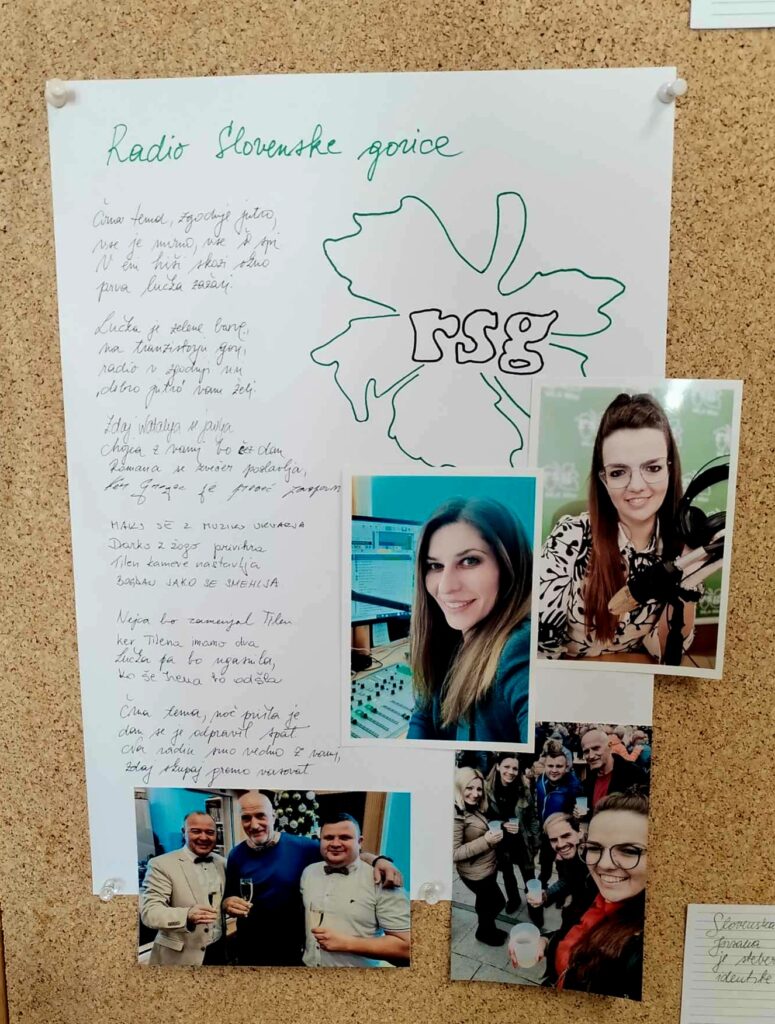 Radio Slovenske gorice
rsg
Črna tema, zgodnje jutro,
vse je mirno, vse še spi
V eni hiši skozi okno
prva lučka zažari.
Lučka je zelene barve,
na tranzistorju gori,
radio v zgodnji uri
"dobro jutro" vam želi.
Zdaj Natalija se javlja
Mojca z vami bo čez dan
Romana se zvečer poslavlja,
je preveč zaspan
MAKS SE Z MUZIKO UKVARJA
Darko z žogo privihra
Tilen kamere nastavlja
BOGDAN JAKO SE SMEHLJA
Nejca bo zamenjal Tilen
ker Tilena imamo dva
Lučka pa bo ugasnila,
ko še Irena bo odšla
Črna tema, noč prišla je
dan se je odpravil spat
Na radiu smo vedno z vami,
zdaj skupaj gremo vasovat
Slovenska
je steber